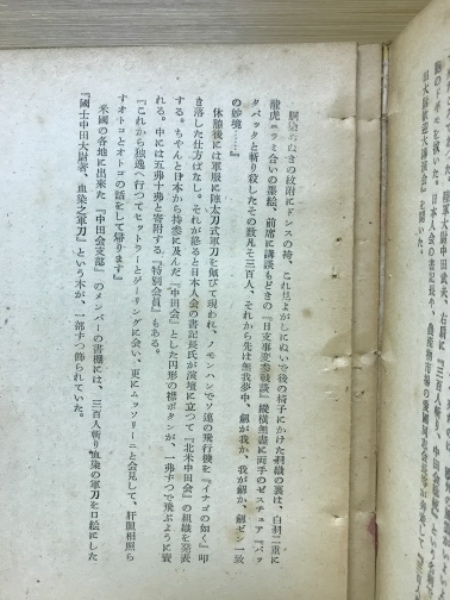 陸軍大尉中田武夫、右肩に『三百人斬り、中田
日本人会の書記長や、農産物市場の愛国
山大陸軍大講演会』を開いた。
ぬきの紋附にドンスの袴、これ見よがしにぬいで後の椅子にかけた羽織の裏は、白羽二重に
龍虎ニラミ合いの墨絵、前席に講談もどきの『日支事変参戦談』縦横無尽に両手のゼスチュア『バッ
タバッタと斬り殺したその数凡そ三百人、それから先は無我夢中、劔が我か、我が劔か、劔ゼン一致
の妙境……』
休憩後には軍服に陣太刀式軍刀を佩びて現われ、ノモンハンでソ連の飛行機を『イナゴの如く』叩
き落した仕方ばなし。それが終ると日本人会の書記長氏が演壇に立つて『北米中田会』の組織を発表
する。ちやんと日本から持参に及んだ『中田会』とした円形の襟ボタンが、一弗ずつで飛ぶように賣
れる。中には五弗十弗と寄附する『特別会員』もある。
『これから独逸へ行つてヒットラーとゲーリングに会い、更にムッソリーニと会見して、肝胆相照ら
すオトコとオトコの話をして帰ります』
米國の各地に出来た『中田会支部』のメンバーの書棚には、三百人斬り血染の軍刀を口絵にした
『國士中田大尉著、血染之軍刀』という本が、一部ずつ飾られていた。